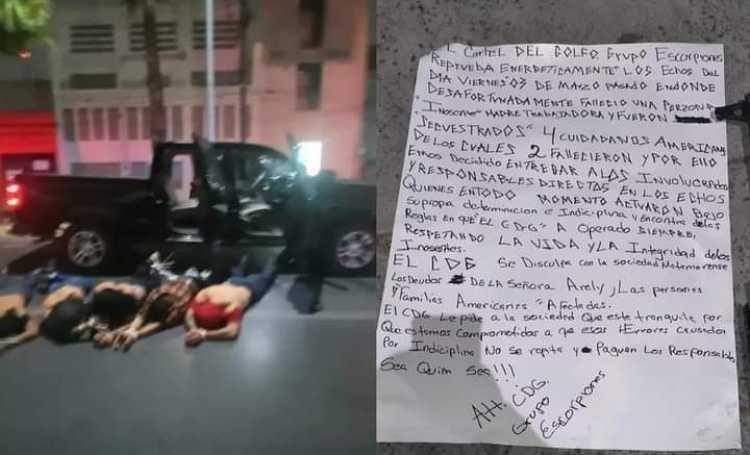 EL Cartel DEL GOLFO. Grupo Escorpiones
REPRUEBA ENERGETICAMENTE" LOS Echos DEL
DIA VIERNES" 03 DE MARZO PASADO ENDONDE
DESAFORTUNADAMENTE FALLECIO UNA PERZONA
"INOSENTE" MADRE TRABAJADORA y FUERON
SECUESTRADOS" 4 CUIDADANOS AMERICAN
DE LOS CUALES 2 FALLECIERON y POR ELLO
Emos Decidido ENTREGAR A LOS INVolucrados
y RESPONSABLES DIRECTOS EN LOS ECHOS
QUIENES EN TODO MOMENTO ACTUARON BAJO
Su propa determinacion e Indiciplina y EN contra de las
Reglas EN que" EL CDG" A Operado SIEMPRE,
RESPETANDO LA VIDA y LA Integridad de los
Inosentes.
EL CDG Se Disculpa con La sociedad Matamorense
Los Deudos DE LA Señora Arely, y Las personas
y Familias Americanes "Afectadas.
El CDG Le pide a la sociedad Que este tranquile por
Que estamos comprometidos a que esos Errores causados
Por Indiciplina No se repita y Paguen Los Responsables
Sea Quien Sea!!!
Att. CDG.
Grupo
Escorpiones